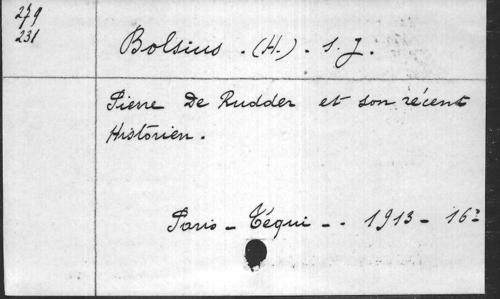 279
231
Bolsius . (H.) . S. J.
Pierre De Rudder et son récent
Historien .
Paris - Téqui - . 1913 - 16°